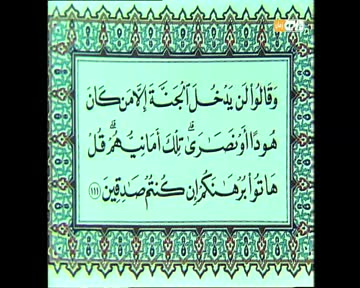 وَقَالُوا۟ لَن يَدْخُلَ ٱلْجَنَّةَ إِلَّا مَن كَانَ
هُودًا أَوْ نَصَٰرَىٰ ۗ تِلْكَ أَمَانِيُّهُمْ ۗ قُلْ
هَاتُوا۟ بُرْهَٰنَكُمْ إِن كُنتُمْ صَٰدِقِينَ ١١١